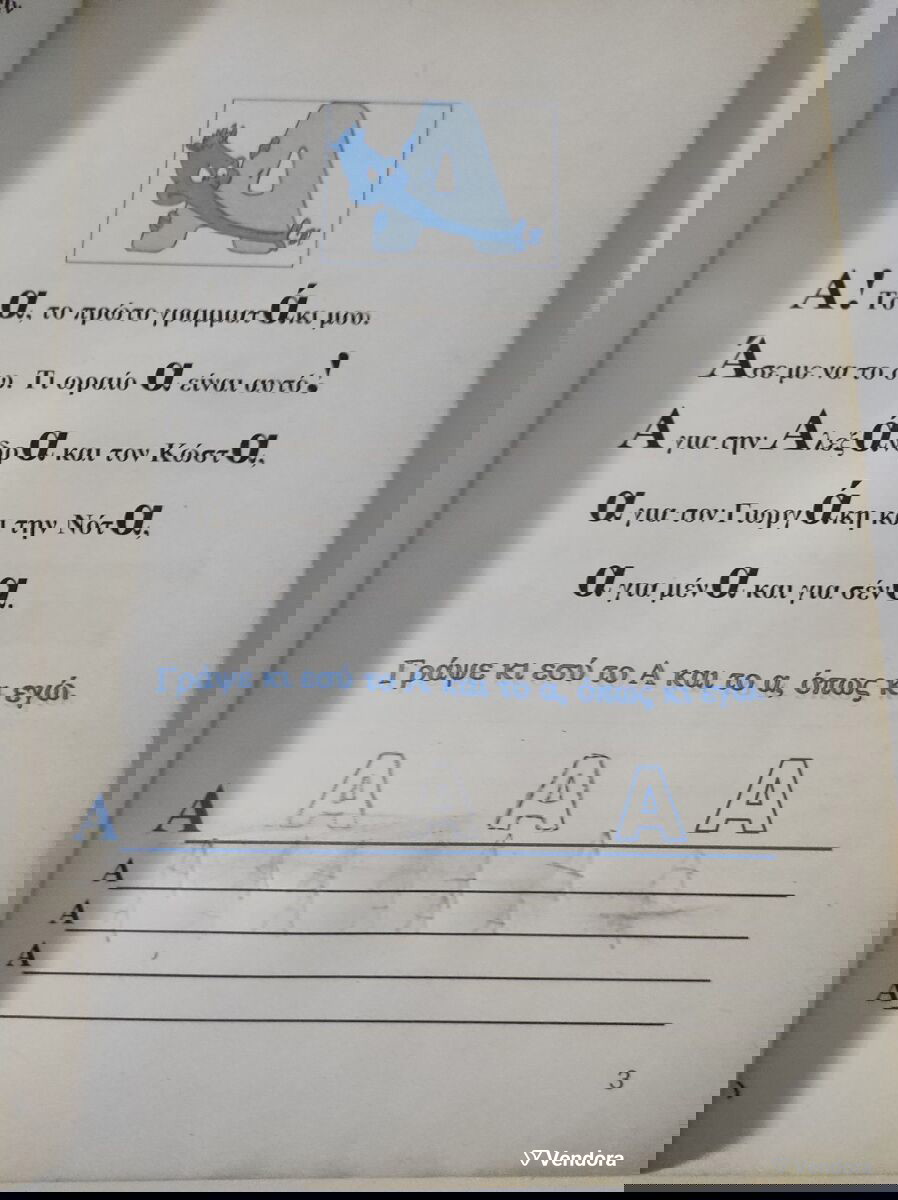 Α! Το α, το πρώτο γραμματάκι μου.
Άσε με να το
Τι ωραίο α είναι αυτό!
Α για την Αλεξάνδρα και τον Κώστα,
α για τον Γιωργάκη και την Νότα,
α για μένα και για σένα.
Γράψε κι εσύ το Α και το α, όπως κι εγώ.
Α Α Α Α Α Α
Α
Α
Α
Α
3
Vendora